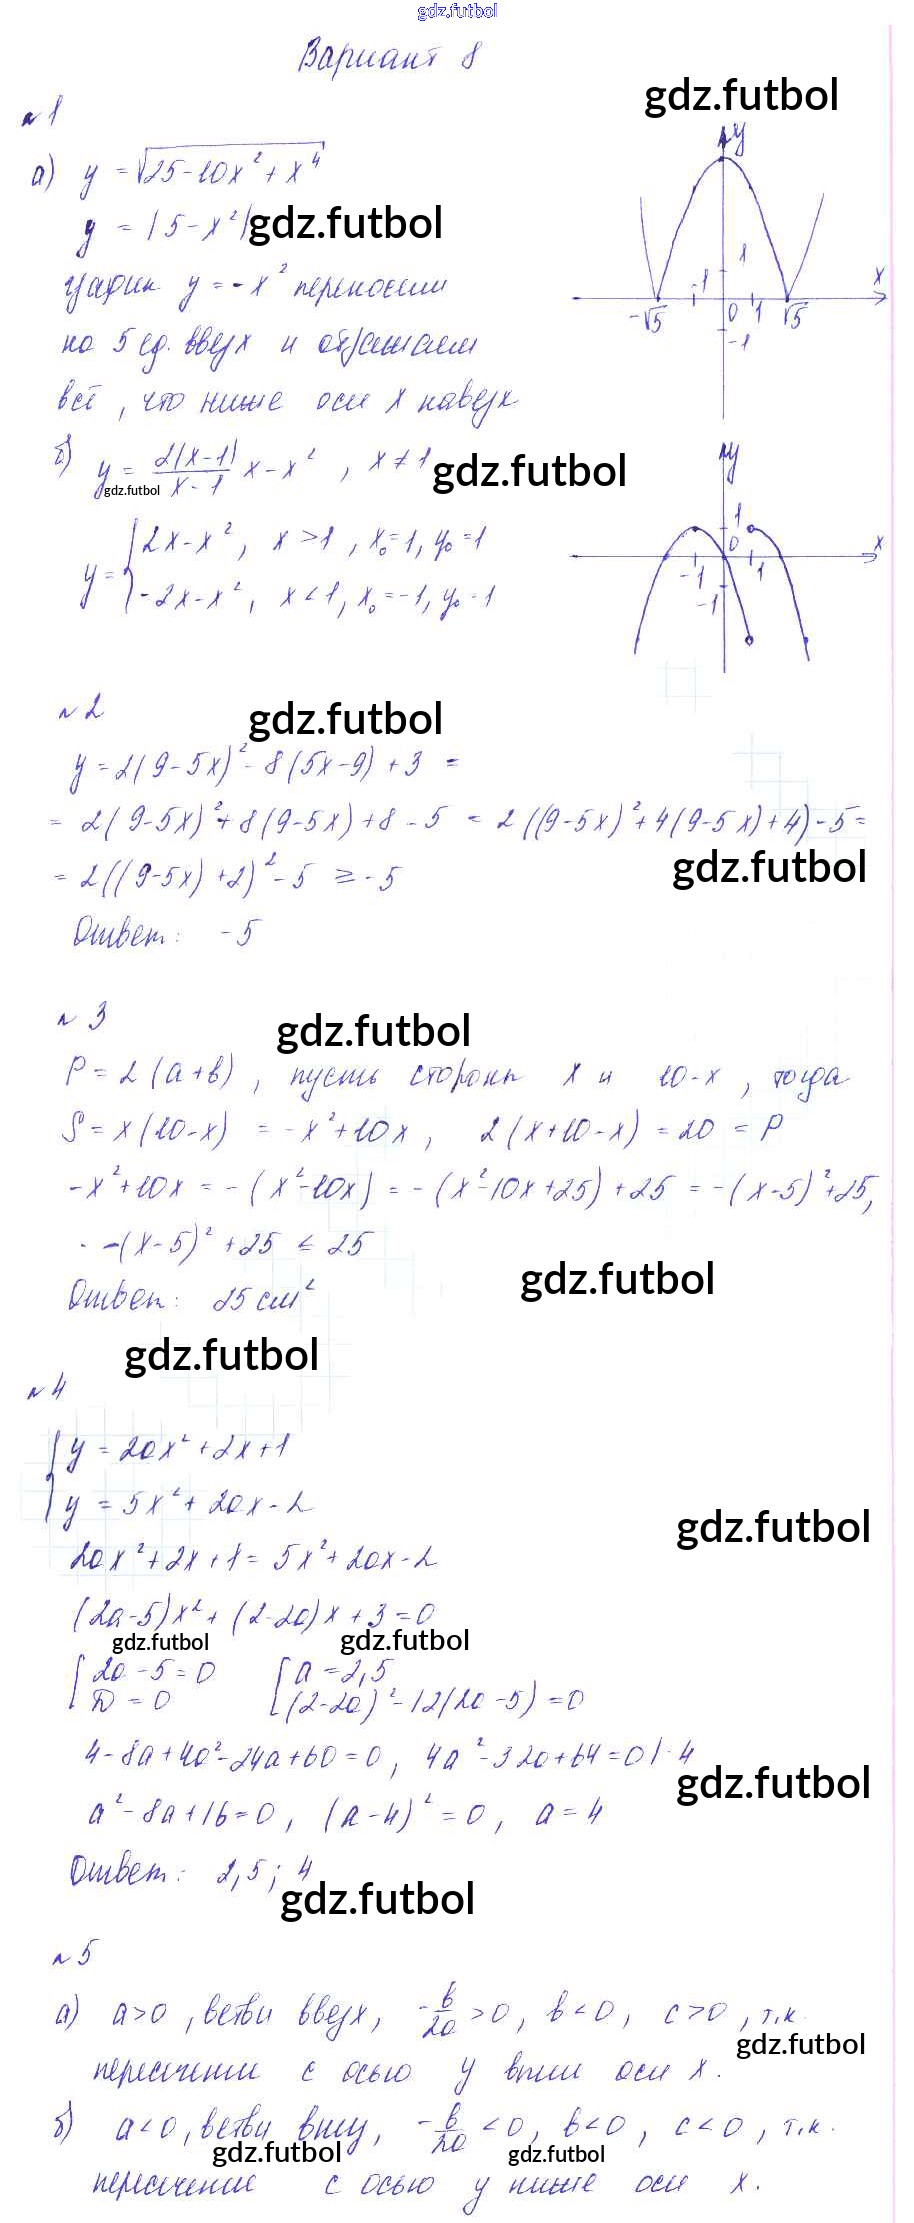 gdz.futbol
Вариант 8
gdz.futbol
№1
а) y = √(25-10x²+x⁴)
y = |5-x²|
gdz.futbol
график y = -x² переносим
на 5 ед. вверх и отражаем
всё, что ниже оси x наверх
y
x
1
-1
-√5
0
1
√5
-1
б) y = 2|x-1|/(x-1) x - x², x≠1
gdz.futbol
gdz.futbol
y = { 2x-x², x>1, x₀=1, y₀=1
-2x-x², x<1, x₀=-1, y₀=1
y
1
0
x
-1
1
-1
№2
gdz.futbol
y = 2(9-5x)² - 8(5x-9) + 3 =
= 2(9-5x)² + 8(9-5x) + 8 - 5 = 2((9-5x)² + 4(9-5x) + 4) - 5 =
gdz.futbol
= 2((9-5x)+2)² - 5 ≥ -5
Ответ: -5
№3
gdz.futbol
P = 2(a+b), пусть стороны x и 10-x, тогда
S = x(10-x) = -x²+10x, 2(x+10-x) = 20 = P
-x²+10x = -(x²-10x) = -(x²-10x+25)+25 = -(x-5)²+25,
-(x-5)²+25 ≤ 25
gdz.futbol
Ответ: 25 см²
gdz.futbol
№4
{ y = 2ax²+2x+1
y = 5x²+2ax-2
gdz.futbol
2ax²+2x+1 = 5x²+2ax-2
(2a-5)x²+(2-2a)x+3=0
gdz.futbol
gdz.futbol
[ 2a-5=0 [ a=2,5
D=0 (2-2a)²-12(2a-5)=0
4-8a+4a²-24a+60=0, 4a²-32a+64=0 |:4
gdz.futbol
a²-8a+16=0, (a-4)²=0, a=4
Ответ: 2,5; 4
gdz.futbol
№5
а) a>0, ветви вверх, -b/2a>0, b<0, c>0, т.к.
gdz.futbol
пересечении с осью y выше оси x.
б) a<0, ветви вниз, -b/2a<0, b<0, c<0, т.к.
gdz.futbol
gdz.futbol
пересечение с осью y ниже оси x.